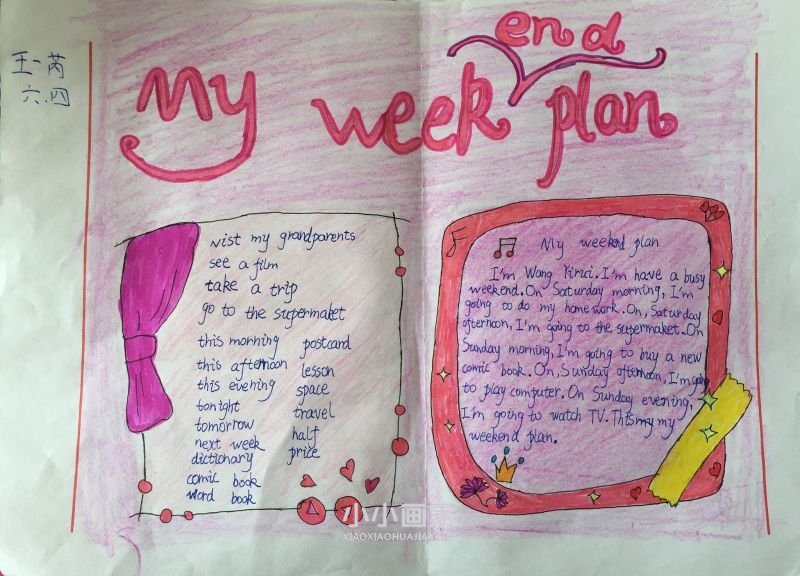 王一芮
六.四
My weekend plan
vist my grandparents
see a film
take a trip
go to the supermaket
this morning postcard
this afternoon lesson
this evening space
tonight travel
tomorrow half
next week price
dictionary
comic book
word book
My weekend plan
I'm Wang Yirui. I'm have a busy
weekend. On Saturday morning, I'm
going to do my homework. On, Saturday
afternoon, I'm going to the supermaket. On
Sunday morning, I'm going to buy a new
comic book. On, Sunday afternoon, I'm going
to play computer. On Sunday evening,
I'm going to watch TV. This my my
weekend plan.
小小画家
XIAOXIAOHUAJIA